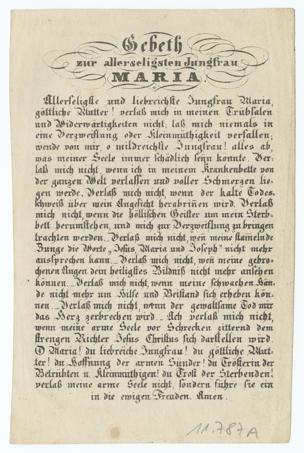 Gebeth
zur allerseligsten Jungfrau
MARIA.
Allerseligste und liebreichste Jungfrau Maria,
göttliche Mutter! verlaß mich in meinen Trübsalen
und Widerwärtigkeiten nicht, laß mich niemals in
eine Verzweiflung oder Kleinmüthigkeit verfallen;
wende von mir, o mildreichste Jungfrau! alles ab,
was meiner Seele immer schädlich seyn konnte. Ver-
laß mich nicht, wenn ich in meinem Krankenbette von
der ganzen Welt verlassen und voller Schmerzen lie-
gen werde. Verlaß mich nicht, wenn der kalte Todes-
schweiß über mein Angesicht herabrinen wird. Verlaß
mich nicht, wenn die höllischen Geister um mein Sterb-
bett herumstehen, und mich zur Verzweiflung zu bringen
trachten werden. Verlaß mich nicht, weñ meine künelnde
Zunge die Worte „Jesus Maria und Joseph" nicht mehr
aussprechen kann. Verlaß mich nicht, weñ meine gebro-
chenen Augen dein heiligstes Bildniß nicht mehr ansehen
können. Verlaß mich nicht, wenn meine schwachen Hän-
de nicht mehr um Hilfe und Beistand sich erheben kön-
nen. Verlaß mich nicht, wenn der gewaltsame Tod mir
das Herz zerbrechen wird. Ach verlaß mich nicht,
wenn meine arme Seele vor Schrecken zitternd dem
strengen Richter Jesus Christus sich darstellen wird.
O Maria! du liebreiche Jungfrau! du göttliche Mut-
ter! du Hoffnung der armen Sünder! du Trösterin der
Betrübten u. Kleinmüthigen! du Trost der Sterbenden!
verlaß meine arme Seele nicht, sondern führe sie ein
in die ewigen Freuden. Amen.
11.787A